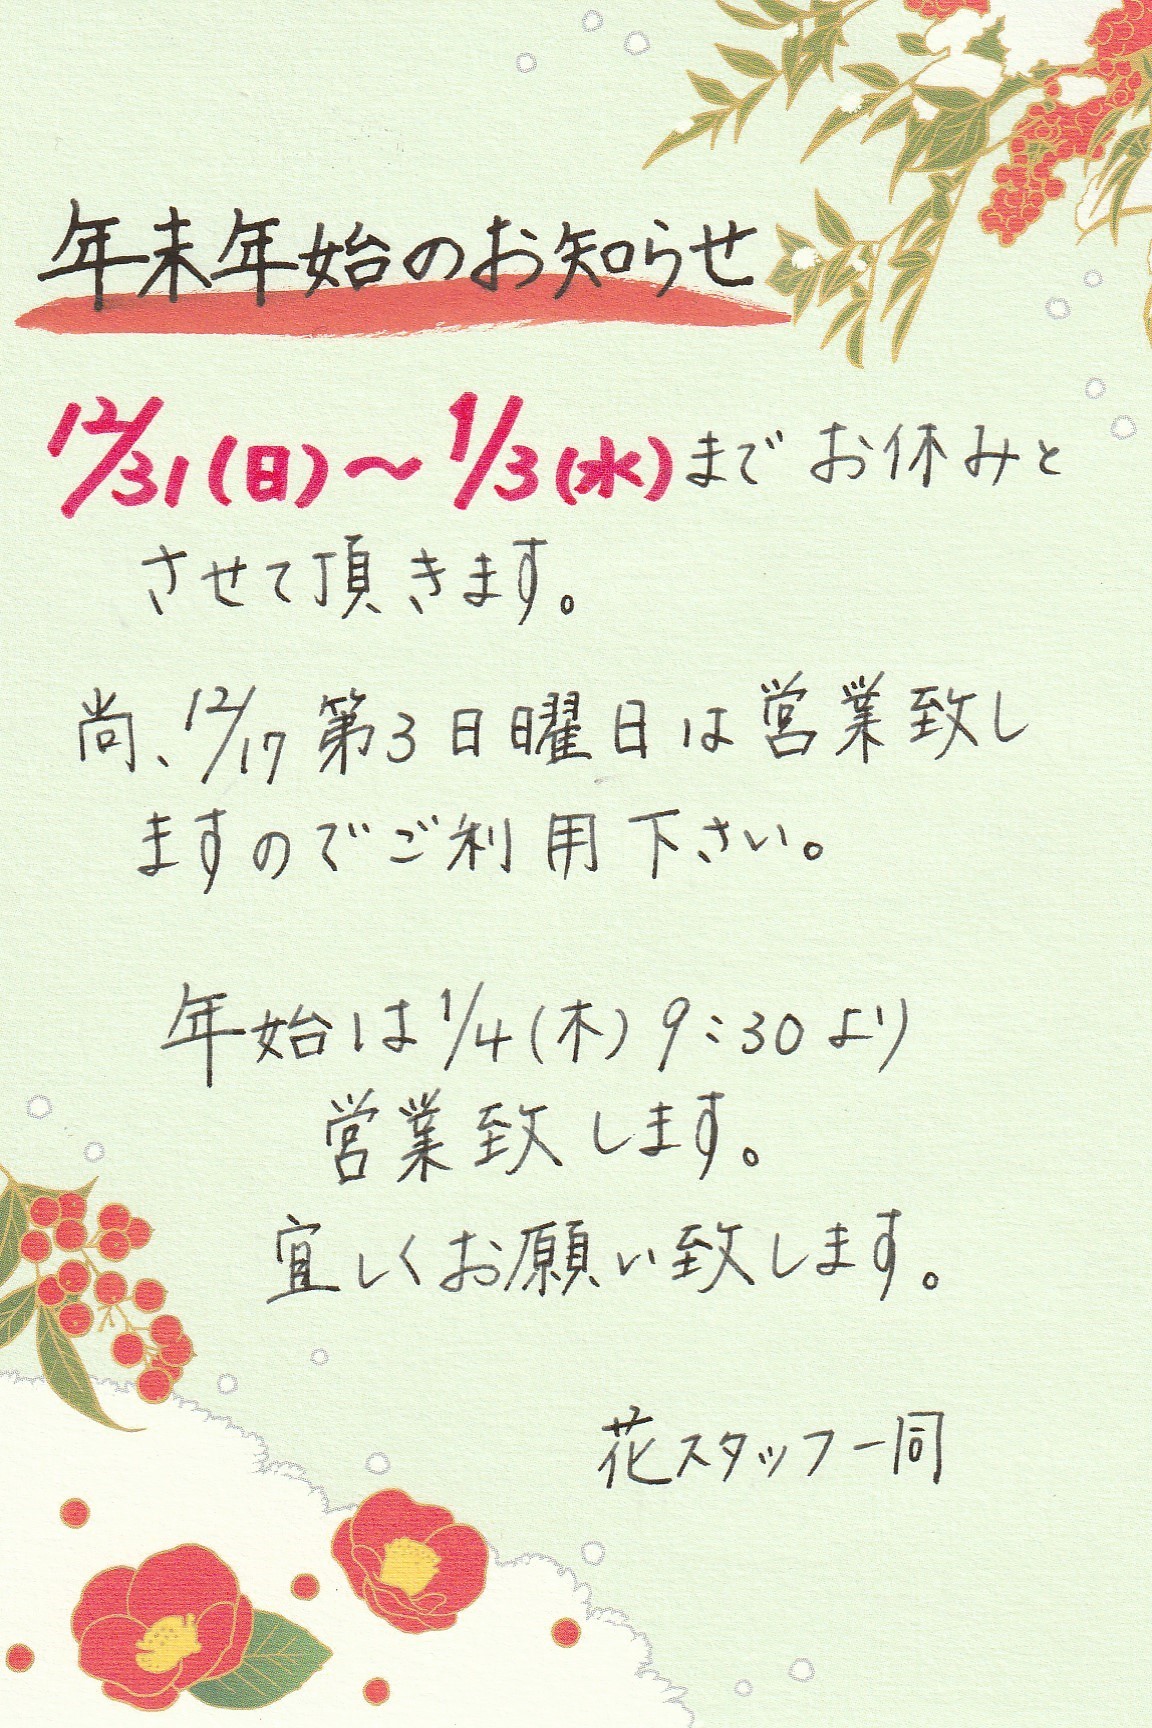 年末年始のお知らせ
12/31(日)～1/3(水)までお休みと
させて頂きます。
尚、12/17第3日曜日は営業致し
ますのでご利用下さい。
年始は1/4(木)9:30より
営業致します。
宜しくお願い致します。
花スタッフ一同